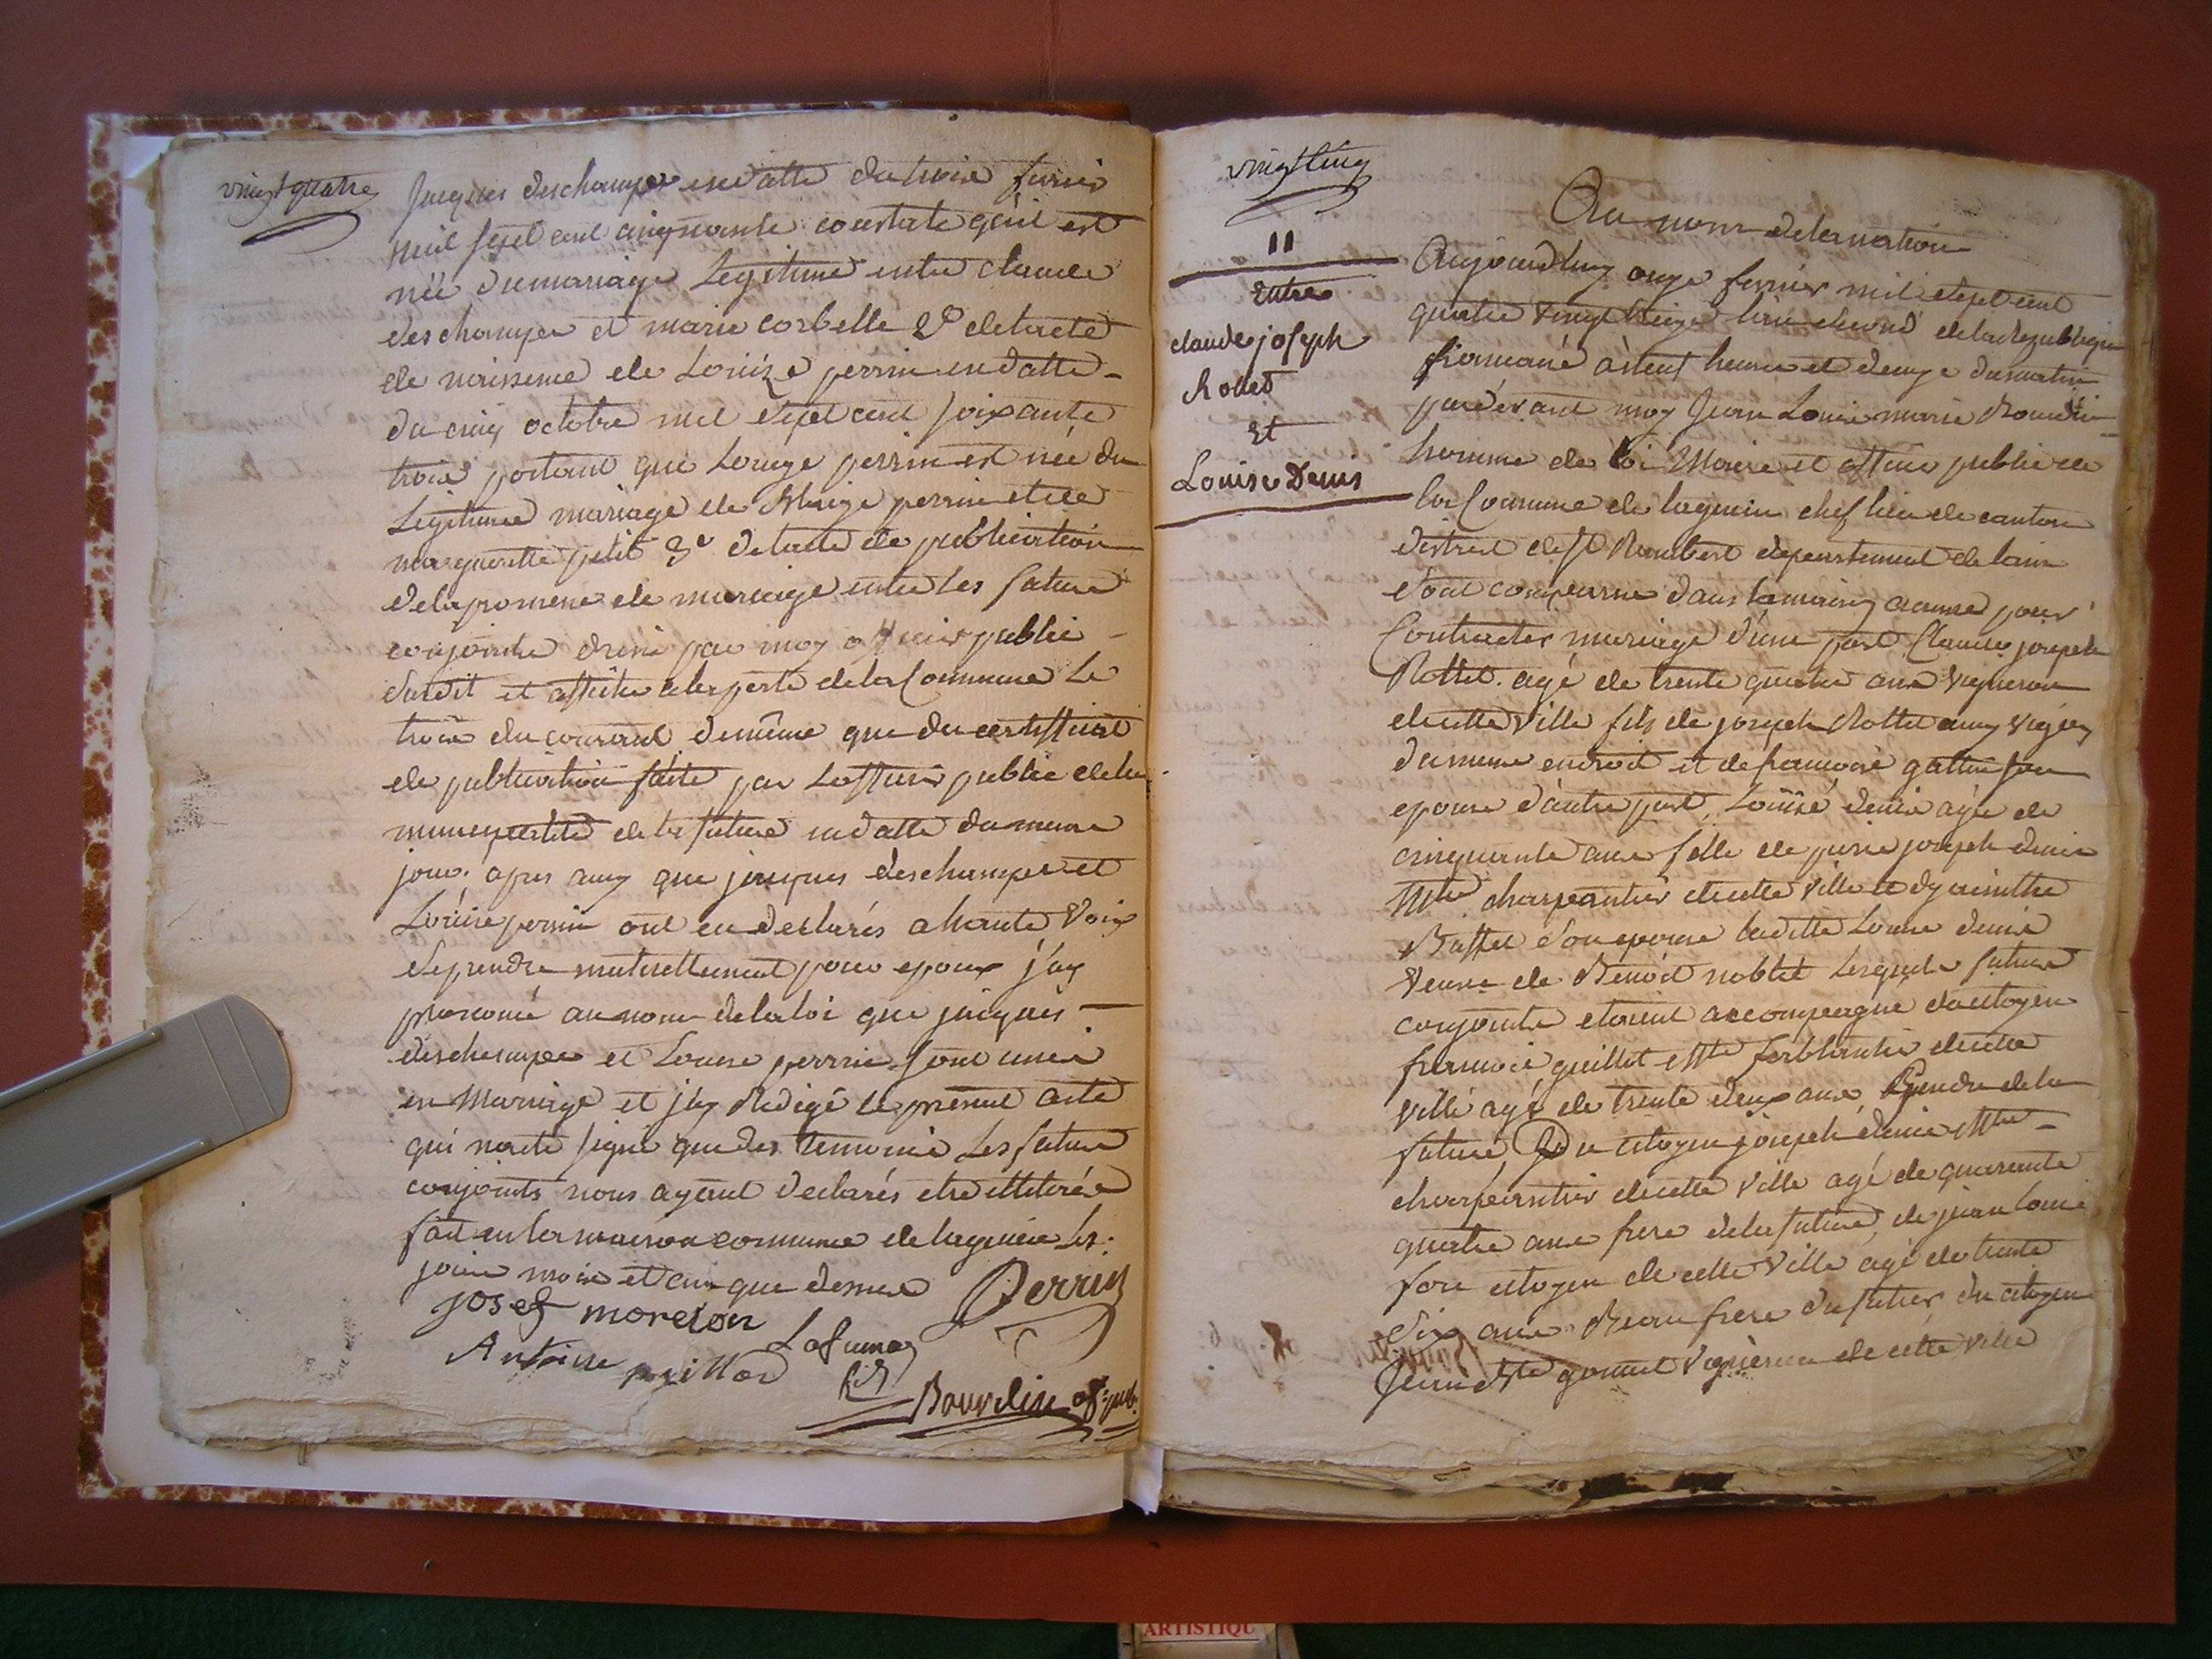 vingt quatre
Jacques deschampes en datte du trois fevrier
mil sept cent cinquante constate qu'il est
née du mariage Legitime entre claude
deschampes et marie corbelle 2º de lacte
de naissence de Louise perrin en datte
du cinq octobre mil sept cent soixante
trois portant que Louise perrin est née du
Legitime mariage de Blaize perrin et de
margueritte petit 3º de lacte de publication
de la promesse de mariage entre Les futurs
conjoints dressé par moy officier public
susdit et affiché a la porte de la Commune Le
trois du courant de même que du certifficat
de publication faite par Lofficier public de la
municipalité de la future en datte du meme
jour. apres aussy que jacques deschampes et
Louise perrin ont eu declarés a haute voix
se prendre mutuellement pour epoux j'ay
prononcé au nom de la loi que jacques
deschampes et Louise perrin sont unis
en Mariage et j'ay Redigé le present acte
qui n'a eté signé que des temoins Les futurs
conjoints nous ayant declarés etre illiterés
fait en la maison commune de lagnieu Les
jour mois et an que dessus Perrin
josef morelon
Lafuma
Antoine
fils
Bourdin of. pub.
vingt cinq
11
Entre
claude joseph
Rottet
Et
Louise Denis
Au nom de la nation
Aujourdhuy onze fevrier mil sept cent
quatre vingt treize l'an second de la republique
francaise à neuf heures et demye du matin
pardevant moy Jean Louis marie Bourdin
homme de loi Maire et officier public de
la Commune de lagnieu chef lieu de canton
district de St Rambert departement de lain
sont comparus dans la maison commune pour
Contracter mariage d'une part Claude joseph
Rottet agé de trente quatre ans vigneron
de cette ville fils de joseph Rottet aussy vigneron
du meme endroit et de francoise gattin son
epouse d'autre part, Louise denis agée de
cinquante ans fille de pierre joseph denis
Mtre charpentier de cette ville et dyacinthe
Buffet son epouse laditte Louise denis
veuve de Benoit noblet Lesquels futurs
conjoints etoient accompagné du citoyen
francois guillot Mtre ferblantier de cette
ville agé de trente deux ans, Gendre de la
future, Du citoyen joseph denis Mtre
charpentier de cette ville agé de quarante
quatre ans frere de la future, de jean louis
citoyen de cette ville agé de trente
six ans Beau frere du futur, du citoyen
Jean Bte vigneron de cette ville